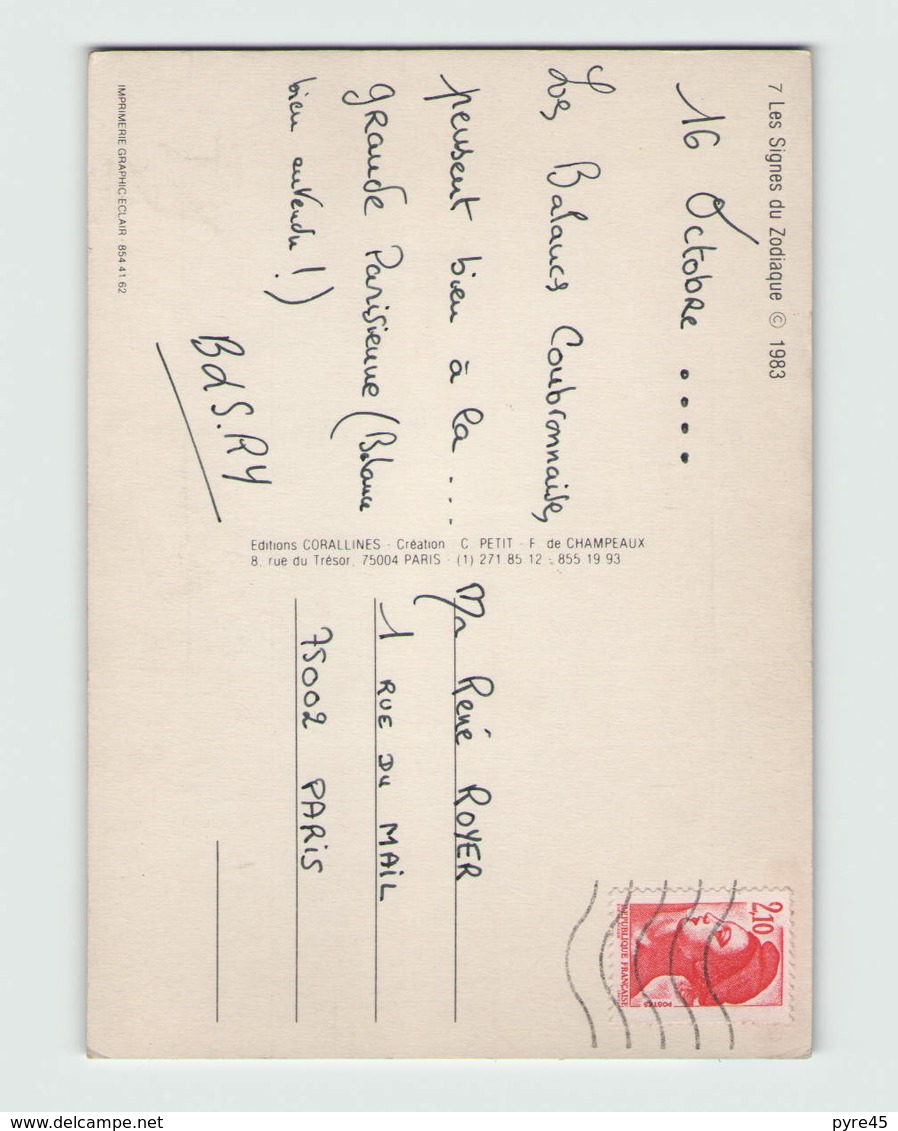 7 Les Signes du Zodiaque © 1983
16 Octobre ....
Les Balances Coubronnaises
pensent bien à la ....
grande Parisienne (Balance
bien entendu !)
IMPRIMERIE GRAPHIC-ECLAIR - 854 41 62
Editions CORALLINES - Création : C. PETIT - F. de CHAMPEAUX
8, rue du Trésor, 75004 PARIS - (1) 271 85 12 - 855 19 93
René ROYER
1 RUE DU MAIL
75002 PARIS
2,10
REPUBLIQUE FRANÇAISE
POSTES
delcampe.net
pyre45